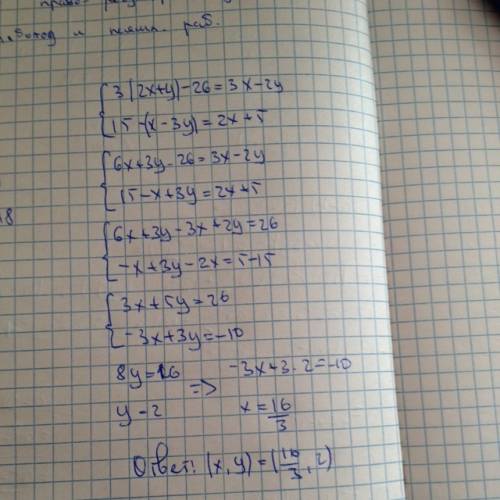 3(2x+y)-26=3x-2y
15-(x-3y)=2x+5
6x+3y-26=3x-2y
15-x+3y=2x+5
18
6x+3y-3x+2y=26
-x+3y-2x=5-15
3x+5y=26
-3x+3y=-10
8y=16 => -3x+3·2=-10
y-2 x=16/3
Ответ: (x,y)=(16/3,2)